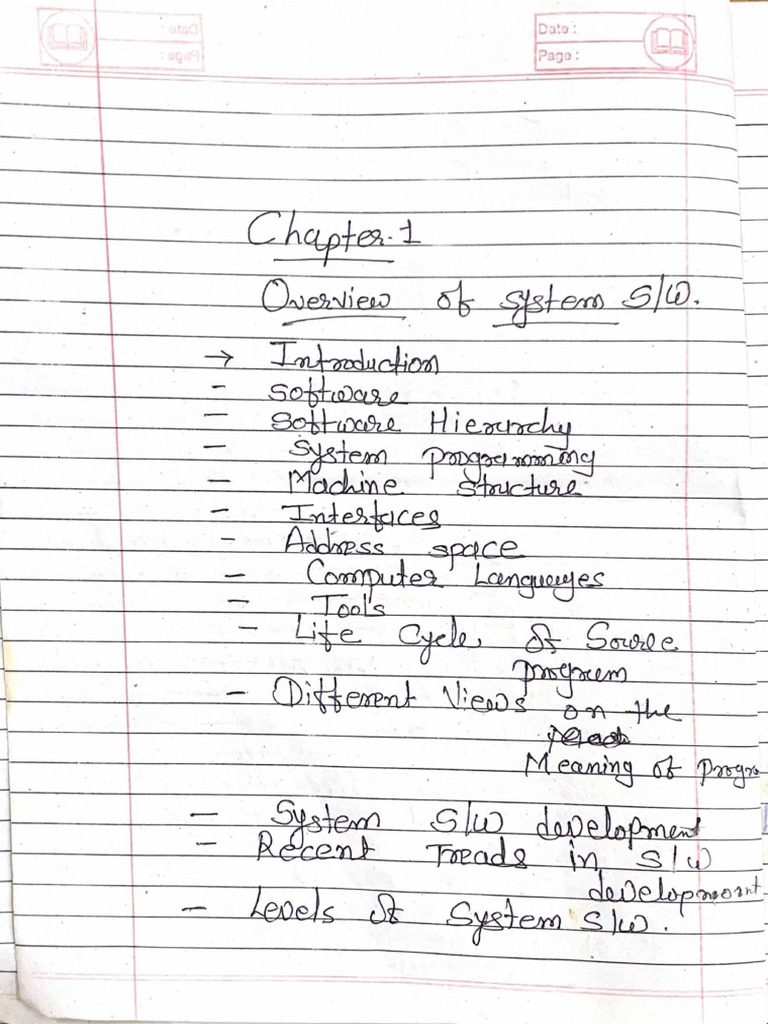 Date :
Page :
Chapter-1
Overview of system S/W.
→ Introduction
- Software
- Software Hierarchy
- System programming
- Machine structure
- Interfaces
- Address space
- Computer Languages
- Tool's
- Life Cycle of Source
program
- Different Views on the
Meaning of Progra
- System S/W development
- Recent Treads in S/W
development
- Levels of System S/W.